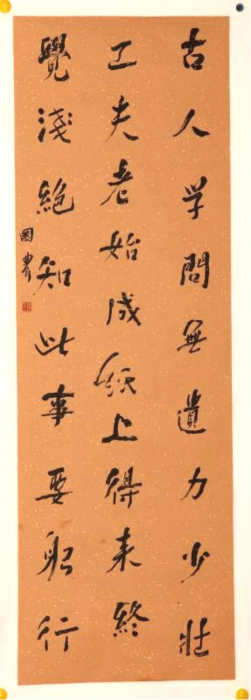 古人学問無遺力少壯
工夫老始成紙上得来終
覺淺絕知此事要躬行